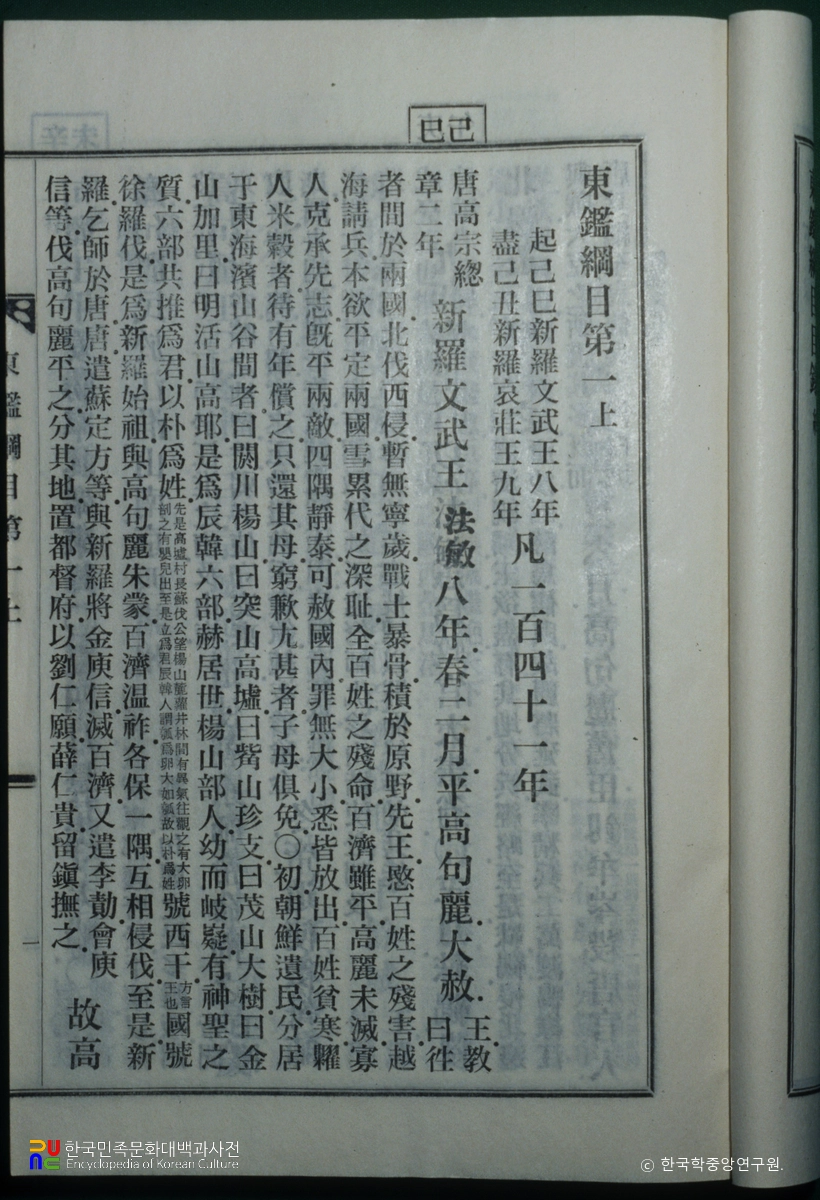 己巳
東鑑綱目第一上
起己巳新羅文武王八年
盡己丑新羅哀莊王九年
凡一百四十一年
唐高宗總
章二年
新羅文武王法敏八年春二月平高句麗大赦
王教
曰徃
者間於兩國北伐西侵暫無寧歲戰士暴骨積於原野先王愍百姓之殘害越
海請兵本欲平定兩國雪累代之深耻全百姓之殘命百濟雖平高麗未滅寡
人克承先志旣平兩敵四隅靜泰可赦國內罪無大小悉皆放出百姓貧寒糶
人米穀者待有年償之只還其母窮歉尤甚者子母俱免〇初朝鮮遺民分居
于東海濱山谷間者曰閼川楊山曰突山高墟曰觜山珍支曰茂山大樹曰金
山加里曰明活山高耶是爲辰韓六部赫居世楊山部人幼而岐嶷有神聖之
質六部共推爲君以朴爲姓
先是高墟村長蘇伐公望楊山麓蘿井林間有異氣往觀之有大卵
剖之有嬰兒出至是立爲君辰韓人謂瓠爲朴大卵如瓠故以朴爲姓
號西干
方言
王也
國號
徐羅伐是爲新羅始祖與高句麗朱蒙百濟温祚各保一隅互相侵伐至是新
羅乞師於唐唐遣蘇定方等與新羅將金庾信滅百濟又遣李勣會庾
信等伐高句麗平之分其地置都督府以劉仁願薛仁貴留鎭撫之
故高
東鑑綱目第一上
한국민족문화대백과사전
Encyclopedia of Korean Culture
© 한국학중앙연구원.